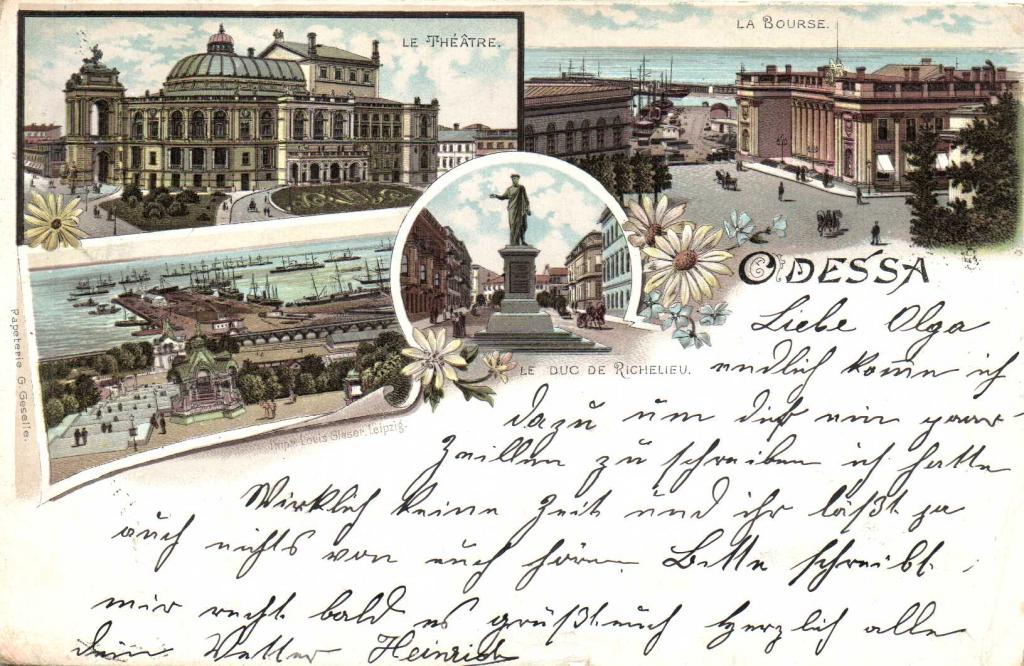 LE THÉÂTRE.
LA BOURSE.
ODESSA
LE DUC DE RICHELIEU.
Papeterie G. Geselle.
Impr. Louis Glaser, Leipzig.
Liebe Olga
endlich kome ich
dazu um dir ein paar
Zeillen zu schreiben ich hatte
Wirklich keine Zeit und ihr läßt ja
auch nichts von euch hören Bitte schreibt
mir recht bald es grüßt euch herzlich alle
dein Vetter Heinrich